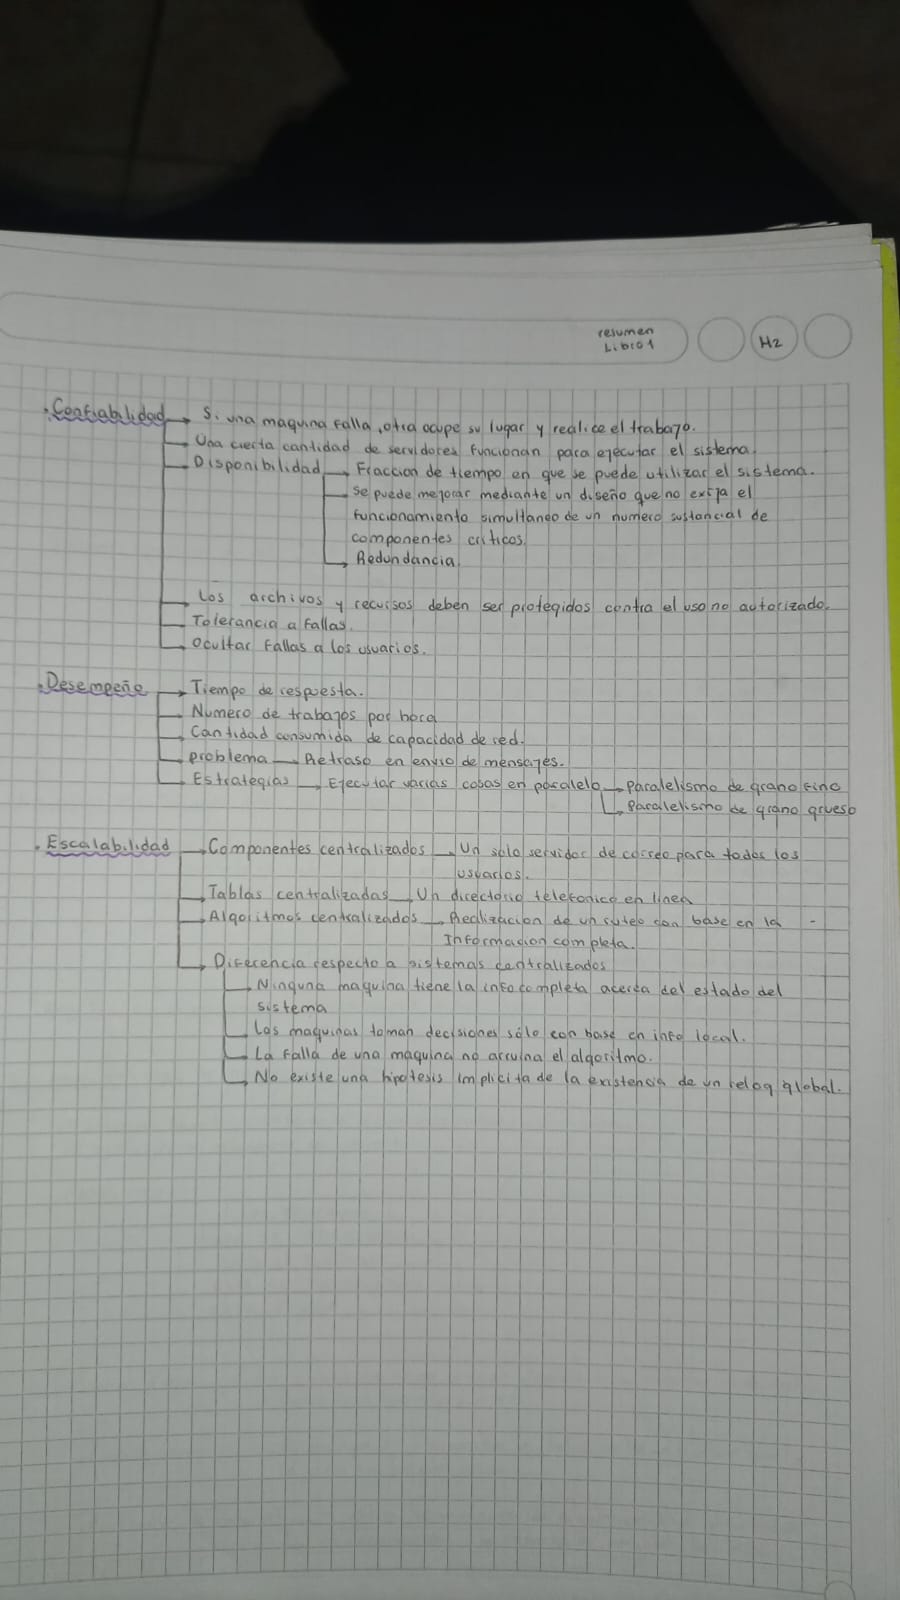 resumen
Libro 1
H2
Confiabilidad → Si una maquina falla, otra ocupe su lugar y realice el trabajo.
→ Una cierta cantidad de servidores funcionan para ejecutar el sistema.
→ Disponibilidad → Fraccion de tiempo en que se puede utilizar el sistema.
→ Se puede mejorar mediante un diseño que no exija el
funcionamiento simultaneo de un numero sustancial de
componentes criticos.
→ Redundancia.
→ Los archivos y recursos deben ser protegidos contra el uso no autorizado.
→ Tolerancia a fallas.
→ Ocultar fallas a los usuarios.
Desempeño → Tiempo de respuesta.
→ Numero de trabajos por hora
→ Cantidad consumida de capacidad de red.
→ problema → Retraso en envio de mensajes.
→ Estrategias → Ejecutar varias cosas en paralelo → Paralelismo de grano fino
→ Paralelismo de grano grueso
Escalabilidad → Componentes centralizados → Un solo servidor de correo para todos los
usuarios.
→ Tablas centralizadas → Un directorio telefonico en linea
→ Algoritmos centralizados → Realizacion de un ruteo con base en la -
Informacion completa.
→ Diferencia respecto a sistemas centralizados
→ Ninguna maquina tiene la info completa acerca del estado del
sistema
→ Las maquinas toman decisiones sólo con base en info local.
→ La falla de una maquina no arruina el algoritmo.
→ No existe una hipotesis implicita de la existencia de un reloj global.